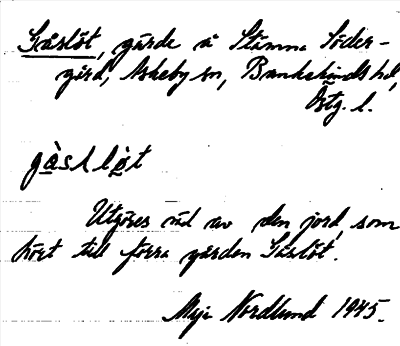 Gåslöt, gärde å Stämma Söder-
gård, Askeby sn, Bankekinds hd,
Östg. l.
gàslløt
Utgöres väl av den jord som
hört till förra gården Gåslöt.
Maja Nordlund 1945.